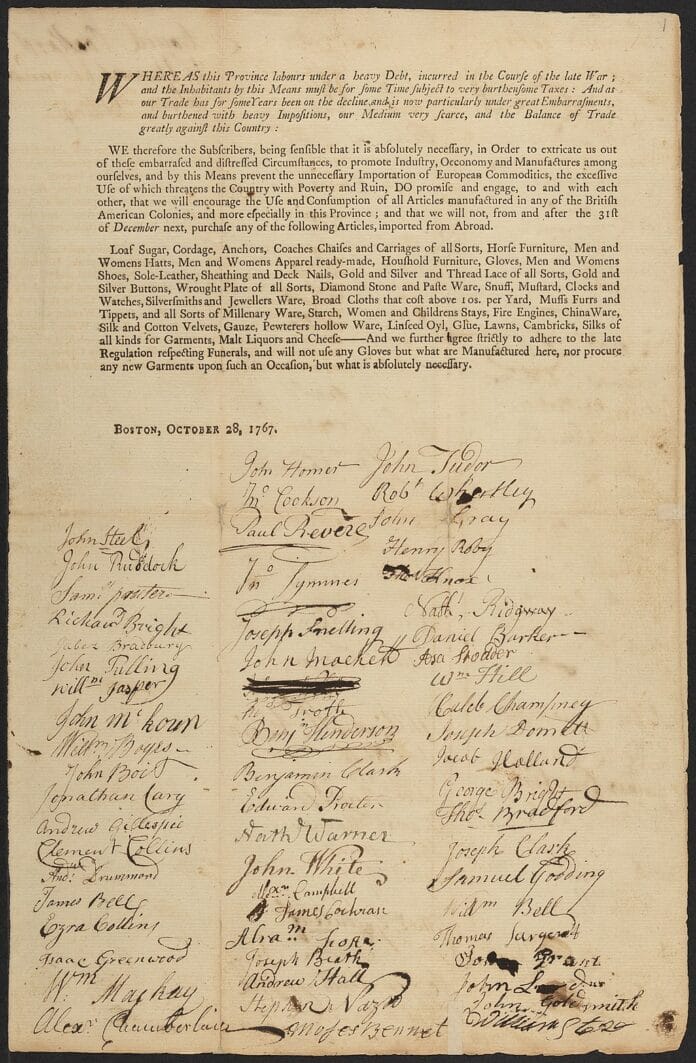 1
WHEREAS this Province labours under a heavy Debt, incurred in the Course of the late War ;
and the Inhabitants by this Means must be for some Time subject to very burthensome Taxes : And as
our Trade has for some Years been on the decline, and is now particularly under great Embarrassments,
and burthened with heavy Impositions, our Medium very scarce, and the Balance of Trade
greatly against this Country :
WE therefore the Subscribers, being sensible that it is absolutely necessary, in Order to extricate us out
of these embarrased and distressed Circumstances, to promote Industry, Oeconomy and Manufactures among
ourselves, and by this Means prevent the unnecessary Importation of European Commodities, the excessive
Use of which threatens the Country with Poverty and Ruin, DO promise and engage, to and with each
other, that we will encourage the Use and Consumption of all Articles manufactured in any of the British
American Colonies, and more especially in this Province ; and that we will not, from and after the 31st
of December next, purchase any of the following Articles, imported from Abroad.
Loaf Sugar, Cordage, Anchors, Coaches Chaises and Carriages of all Sorts, Horse Furniture, Men and
Womens Hatts, Men and Womens Apparel ready-made, Houshold Furniture, Gloves, Men and Womens
Shoes, Sole-Leather, Sheathing and Deck Nails, Gold and Silver and Thread Lace of all Sorts, Gold and
Silver Buttons, Wrought Plate of all Sorts, Diamond Stone and Paste Ware, Snuff, Mustard, Clocks and
Watches, Silversmiths and Jewellers Ware, Broad Cloths that cost above 10s. per Yard, Muffs Furrs and
Tippets, and all Sorts of Millenary Ware, Starch, Women and Childrens Stays, Fire Engines, China Ware,
Silk and Cotton Velvets, Gauze, Pewterers hollow Ware, Linseed Oyl, Glue, Lawns, Cambricks, Silks of
all kinds for Garments, Malt Liquors and Cheese——And we further agree strictly to adhere to the late
Regulation respecting Funerals, and will not use any Gloves but what are Manufactured here, nor procure
any new Garments upon such an Occasion, but what is absolutely necessary.
BOSTON, OCTOBER 28, 1767.
John Steel
John Ruddock
Richard Bright
Jabez Bradbury
John Tulling
Willm Jasper
John McKoun
Willm Boyes
John Boit
Jonathan Cary
Andrew Gillespie
Clement Collins
Andw Drummond
James Bell
Ezra Collins
Isaac Greenwood
Wm Mackay
Alexr Chamberlain
John Homer
Jno Cookson
Paul Revere
Jno Tymmes
Joseph Snelling
John Mackett
Troth
Benjn Henderson
Benjamin Clark
Edward Procter
Nath Warner
John White
Alexn Campbell
James Cochran
Abram
Joseph Beath
Andrew Hall
Moses Bennet
John Tudor
Robt Whartley
John Gray
Henry Roby
Thos Knox
Nathl Ridgway
Daniel Barker
Asa Stodder
Wm Hill
Caleb Champney
Joseph Domett
Jacob Holland
George Bright
Thos Bradford
Joseph Clark
Samuel Gooding
Willm Bell
Thomas Sargent
Grant
John
John Goldsmith
William